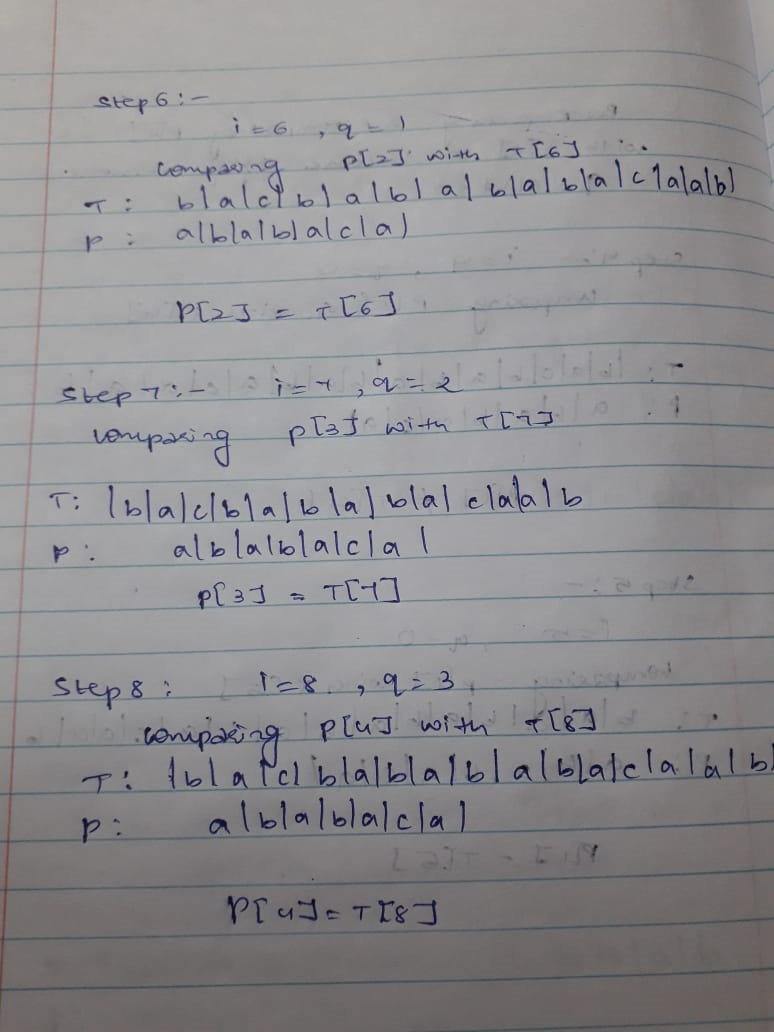 Step 6 :-
i = 6 , q = 1
comparing P[2] with T[6]
T : b|a|c|b|a|b|a|b|a|b|a|c|a|a|b|
P : a|b|a|b|a|c|a|
P[2] = T[6]
Step 7 :- i = 7 , q = 2
comparing P[3] with T[7]
T: |b|a|c|b|a|b|a|b|a|c|a|a|b
P : a|b|a|b|a|c|a|
P[3] = T[7]
Step 8 : i = 8 , q = 3
comparing P[4] with T[8]
T: |b|a|c|b|a|b|a|b|a|b|a|c|a|a|b
P : a|b|a|b|a|c|a|
P[4] = T[8]